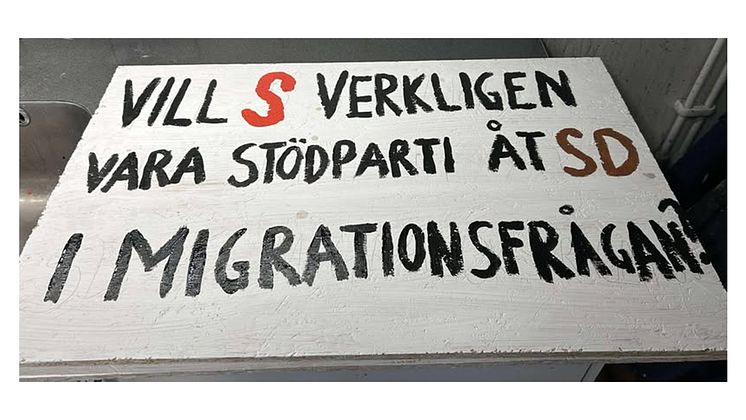 VILL S VERKLIGEN
VARA STÖDPARTI ÅT SD
I MIGRATIONSFRÅGAN?